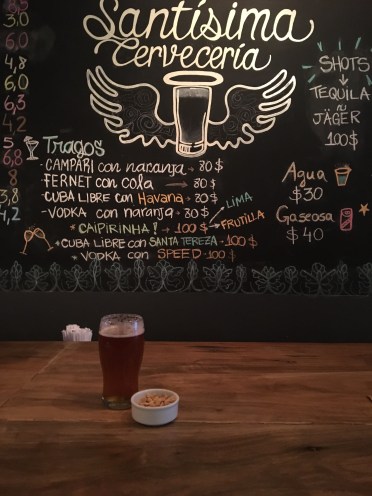 Santísima
Cervecería
3.0
6,0
4,8
6,0
6,3
4,2
5
6,8
8
3,8
4,2
Tragos
- CAMPARI con naranja → 80 $
- FERNET con cola → 80 $
- CUBA LIBRE con Havana → 80 $
- VODKA con naranja → 80 $
* CAIPIRINHA! → 100 $ LIMA
FRUTILLA
* CUBA LIBRE con SANTA TEREZA - 100 $
* VODKA con SPEED - 100 $
SHOTS
TEQUILA
JÄGER
100 $
Agua
$ 30
Gaseosa
$ 40